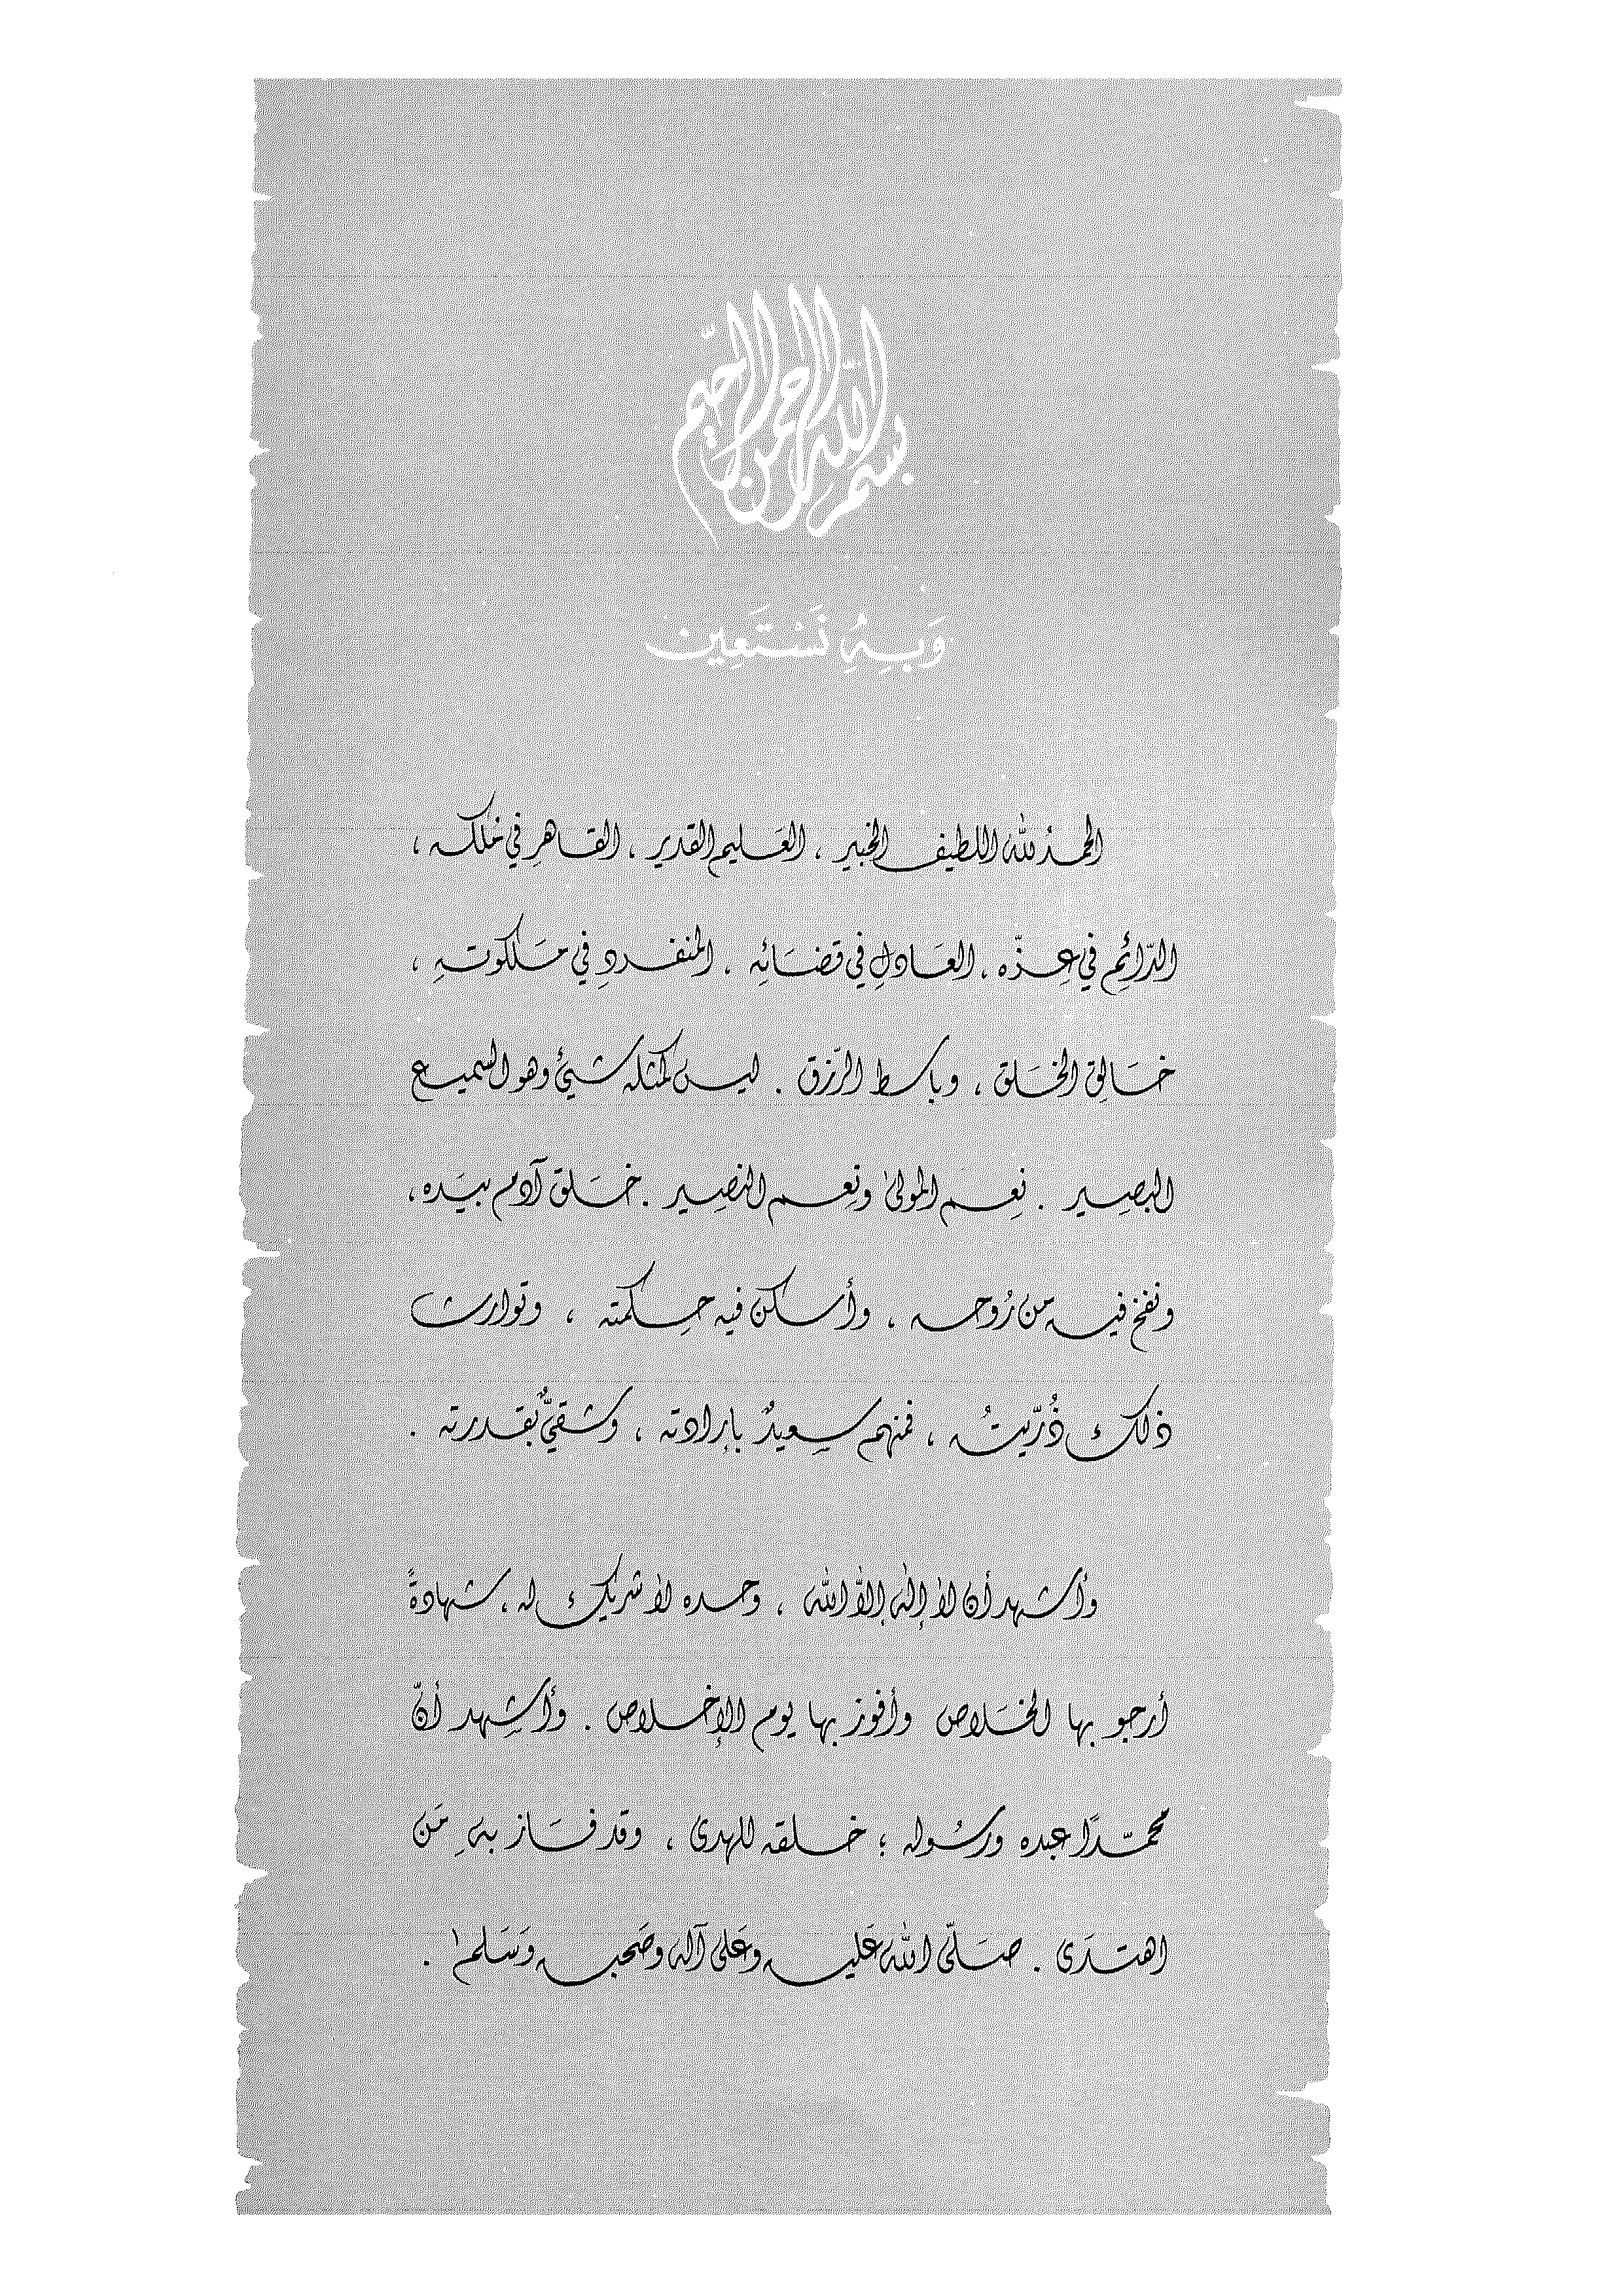 بسم الله الرحمن الرحيم
وَبِهِ نَسْتَعِين
الحمدُ لله اللطيف الخبير ، العَليم القدير ، القاهرِ في مُلكه ،
الدّائِم في عِزّه ، العَادلِ في قضَائِه ، المنفردِ في مَلكوتهِ ،
خَالِق الخَلق ، وباسط الرّزق . ليس كمثله شيئ وهو السميع
البصِير . نِعم المولىٰ ونِعم النصِير . خَلق آدم بيَده ،
ونفخ فيه من رُوحه ، وأسكن فيه حِكمته ، وتوارث
ذلك ذُرّيتُه ، فمنهم سعِيدٌ بإرادته ، وشقيٌّ بقدرته .
وأشهد أن لا إله إلاّ الله ، وحده لا شريك له ، شهادةً
أرجو بها الخَلاص وأفوز بها يوم الإخلاص . وأشهد أنّ
محمّدًا عبده ورسُوله ؛ خلقه للهدى ، وقد فَاز بهِ مَن
اهتدَى . صَلّى الله عَليه وعَلى آله وصَحبه وَسَلم .